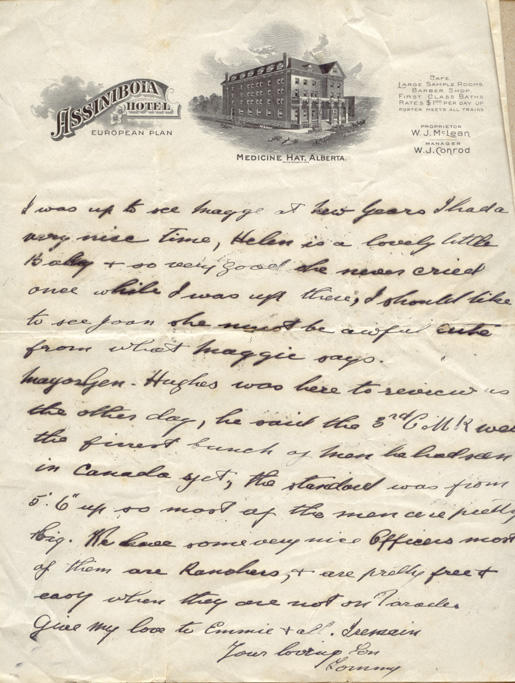 ASSINIBOIA
HOTEL
EUROPEAN PLAN
MEDICINE HAT, ALBERTA.
CAFE
LARGE SAMPLE ROOMS
BARBER SHOP
FIRST CLASS BATHS
RATES $1.00 PER DAY UP
PORTER MEETS ALL TRAINS
PROPRIETOR
W. J. McLean
MANAGER
W. J. Conrod
I was up to see Magge at New Years I had a
very nice time, Helen is a lovely little
Baby + so very good she never cried
once while I was up there, I should like
to see Joan she must be awful cute
from what Maggie says.
Mayor Gen. Hughes was here to review us
the other day, he said the 3rd C M R were
the finest bunch of men he had seen
in Canada yet, the standard was from
5'.6" up so most of the men are pretty
big. We have some very nice Officers most
of them are Ranchers, + are pretty free +
easy when they are not on Parade
Give my love to Emmie + all. I remain
Your loving Son
Tommy